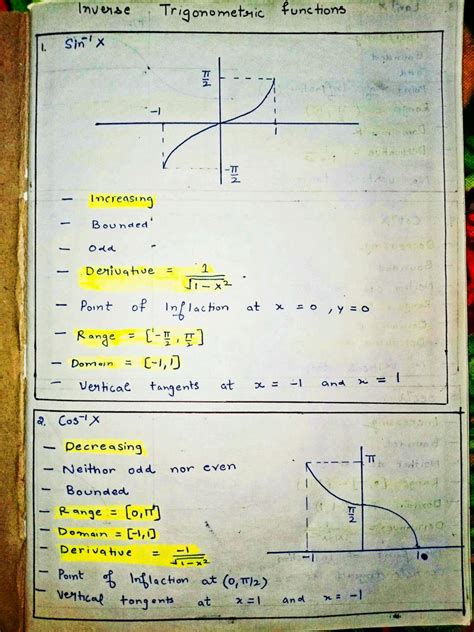 Inverse Trigonometric functions
1. Sin⁻¹ x
π/2
-1
-π/2
- Increasing
- Bounded
- Odd
- Derivative = 1/√1-x²
- Point of Inflaction at x = 0, y = 0
- Range = [-π/2, π/2]
- Domain = [-1,1]
- Vertical tangents at x = -1 and x = 1
2. Cos⁻¹ x
- Decreasing
- Neithor odd nor even
- Bounded
- Range = [0,π]
- Domain = [-1,1]
- Derivative = -1/√1-x²
- Point of Inflaction at (0, π/2)
- Vertical tangents at x=1 and x = -1
π
π/2
-1
1